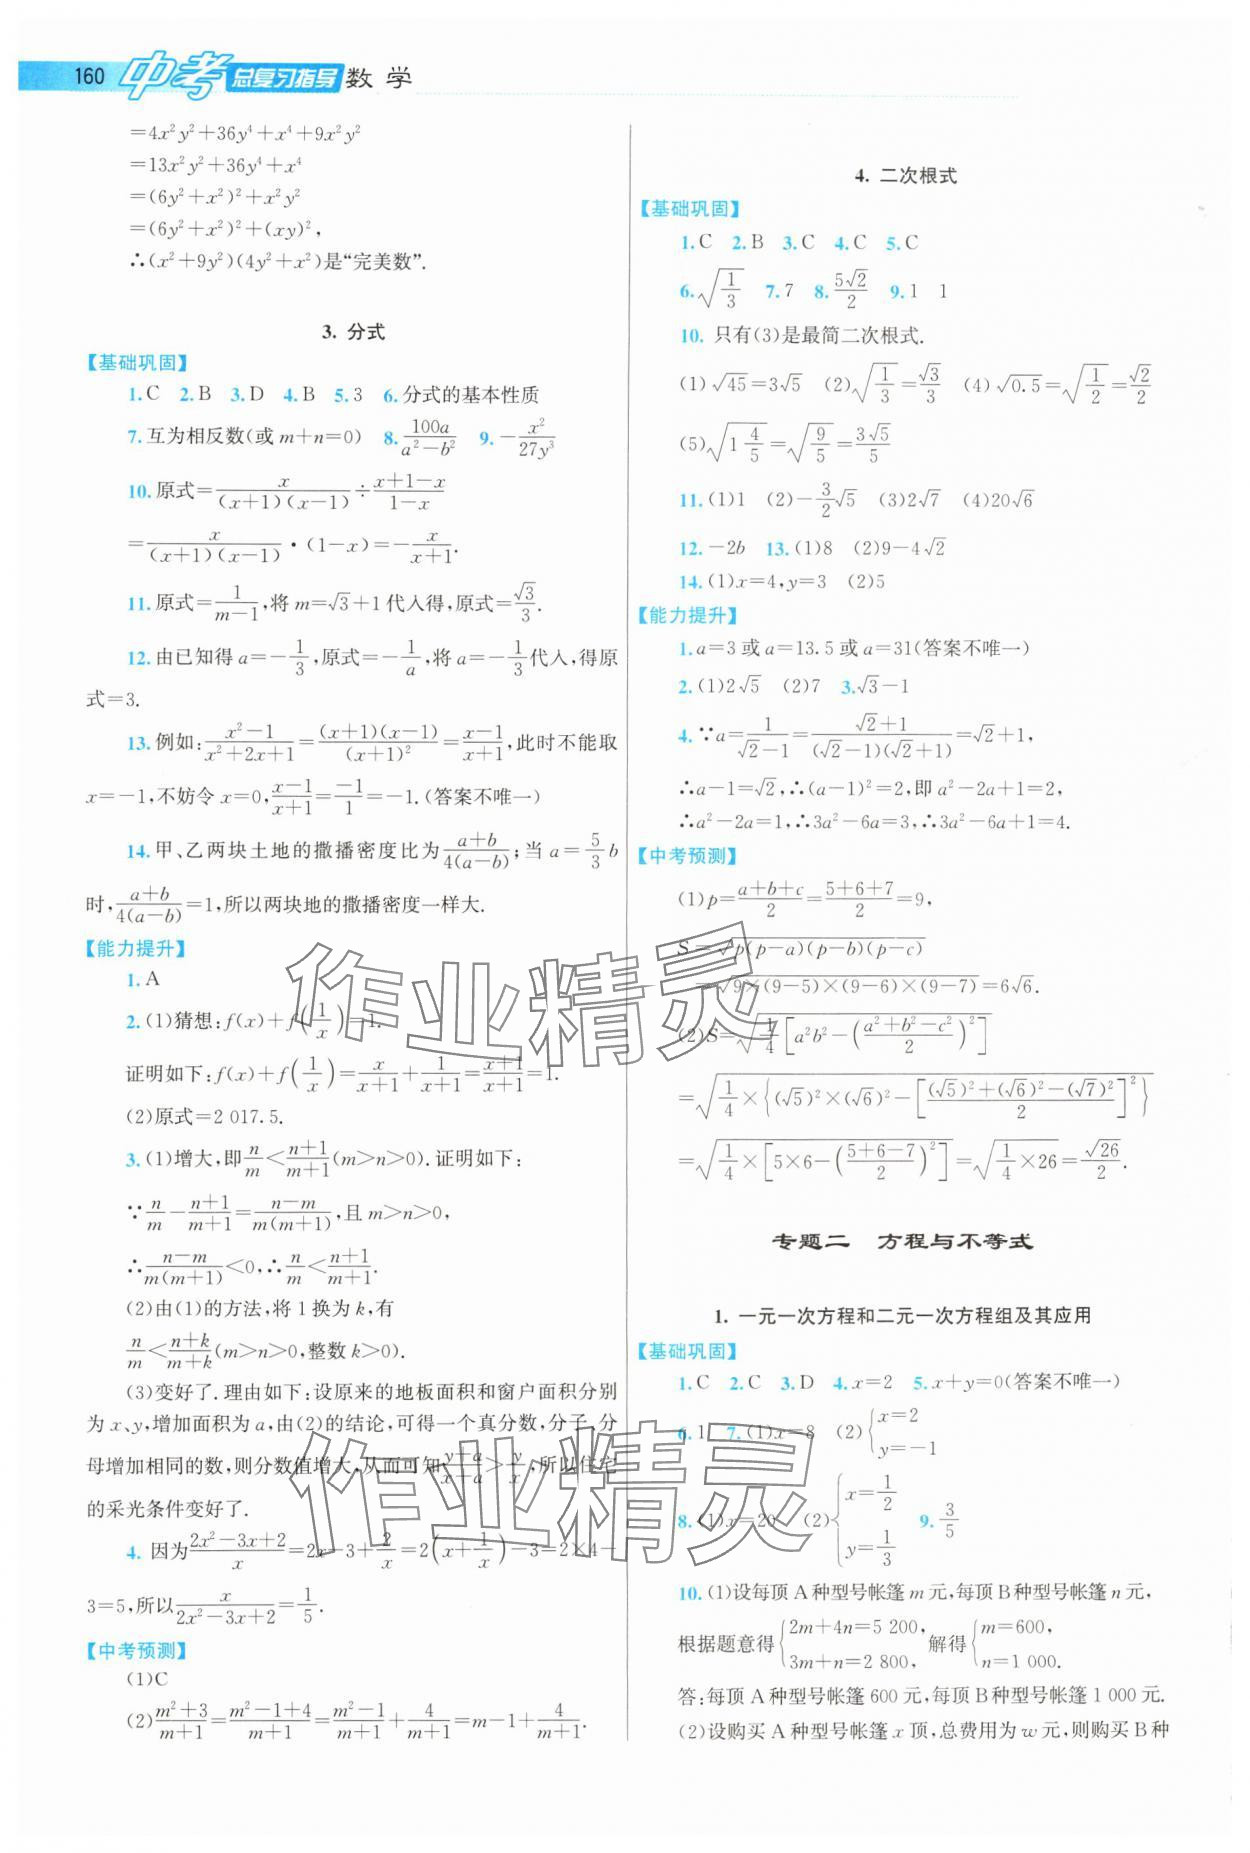 160 中考 总复习指导 数学
=4x²y²+36y⁴+x⁴+9x²y²
=13x²y²+36y⁴+x⁴
=(6y²+x²)²+x²y²
=(6y²+x²)²+(xy)²,
∴(x²+9y²)(4y²+x²)是“完美数”.
3. 分式
【基础巩固】
1.C 2.B 3.D 4.B 5.3 6.分式的基本性质
7.互为相反数(或 m+n=0) 8.100a/(a²-b²) 9.-x²/(27y³)
10.原式=x/((x+1)(x-1))÷(x+1-x)/(1-x)
=x/((x+1)(x-1))·(1-x)=-x/(x+1).
11.原式=1/(m-1),将 m=√3+1 代入得,原式=√3/3.
12.由已知得 a=-1/3,原式=-1/a,将 a=-1/3代入,得原
式=3.
13.例如:(x²-1)/(x²+2x+1)=((x+1)(x-1))/(x+1)²=(x-1)/(x+1),此时不能取
x=-1,不妨令 x=0,(x-1)/(x+1)=(-1)/1=-1.(答案不唯一)
14.甲、乙两块土地的撒播密度比为(a+b)/(4(a-b));当 a=5/3 b
时,(a+b)/(4(a-b))=1,所以两块地的撒播密度一样大.
【能力提升】
1.A
2.(1)猜想:f(x)+f(1/x)=1.
证明如下:f(x)+f(1/x)=x/(x+1)+1/(x+1)=(x+1)/(x+1)=1.
(2)原式=2 017.5.
3.(1)增大,即n/m<(n+1)/(m+1)(m>n>0).证明如下:
∵n/m-(n+1)/(m+1)=(n-m)/(m(m+1)),且 m>n>0,
∴(n-m)/(m(m+1))<0,∴n/m<(n+1)/(m+1).
(2)由(1)的方法,将 1 换为 k,有
n/m<(n+k)/(m+k)(m>n>0,整数 k>0).
(3)变好了.理由如下:设原来的地板面积和窗户面积分别
为 x、y,增加面积为 a,由(2)的结论,可得一个真分数,分子、分
母增加相同的数,则分数值增大,从而可知(y+a)/(x+a)>y/x,所以住宅
的采光条件变好了.
4. 因为(2x²-3x+2)/x=2x-3+2/x=2(x+1/x)-3=2×4-
3=5,所以x/(2x²-3x+2)=1/5.
【中考预测】
(1)C
(2)(m²+3)/(m+1)=(m²-1+4)/(m+1)=(m²-1)/(m+1)+4/(m+1)=m-1+4/(m+1).
4. 二次根式
【基础巩固】
1.C 2.B 3.C 4.C 5.C
6.√(1/3) 7.7 8.5√2/2 9.1 1
10. 只有(3)是最简二次根式.
(1)√45=3√5 (2)√(1/3)=√3/3 (4)√0.5=√(1/2)=√2/2
(5)√(1 4/5)=√(9/5)=3√5/5
11.(1)1 (2)-3/2√5 (3)2√7 (4)20√6
12.-2b 13.(1)8 (2)9-4√2
14.(1)x=4,y=3 (2)5
【能力提升】
1.a=3 或 a=13.5 或 a=31(答案不唯一)
2.(1)2√5 (2)7 3.√3-1
4.∵a=1/(√2-1)=(√2+1)/((√2-1)(√2+1))=√2+1,
∴a-1=√2,∴(a-1)²=2,即 a²-2a+1=2,
∴a²-2a=1,∴3a²-6a=3,∴3a²-6a+1=4.
【中考预测】
(1)p=(a+b+c)/2=(5+6+7)/2=9,
S=√(p(p-a)(p-b)(p-c))
=√(9×(9-5)×(9-6)×(9-7))=6√6.
(2)S=√(1/4[a²b²-((a²+b²-c²)/2)²])
=√(1/4×{(√5)²×(√6)²-[((√5)²+(√6)²-(√7)²)/2]²})
=√(1/4×[5×6-((5+6-7)/2)²])=√(1/4×26)=√26/2.
专题二 方程与不等式
1. 一元一次方程和二元一次方程组及其应用
【基础巩固】
1.C 2.C 3.D 4.x=2 5.x+y=0(答案不唯一)
6.1 7.(1)x=8 (2){x=2 y=-1
8.(1)x=20 (2){x=1/2 y=1/3 9.3/5
10.(1)设每顶 A 种型号帐篷 m 元,每顶 B 种型号帐篷 n 元,
根据题意得{2m+4n=5 200, 3m+n=2 800, 解得{m=600, n=1 000.
答:每顶 A 种型号帐篷 600 元,每顶 B 种型号帐篷 1 000 元.
(2)设购买 A 种型号帐篷 x 顶,总费用为 w 元,则购买 B 种
作业精灵
作业精灵